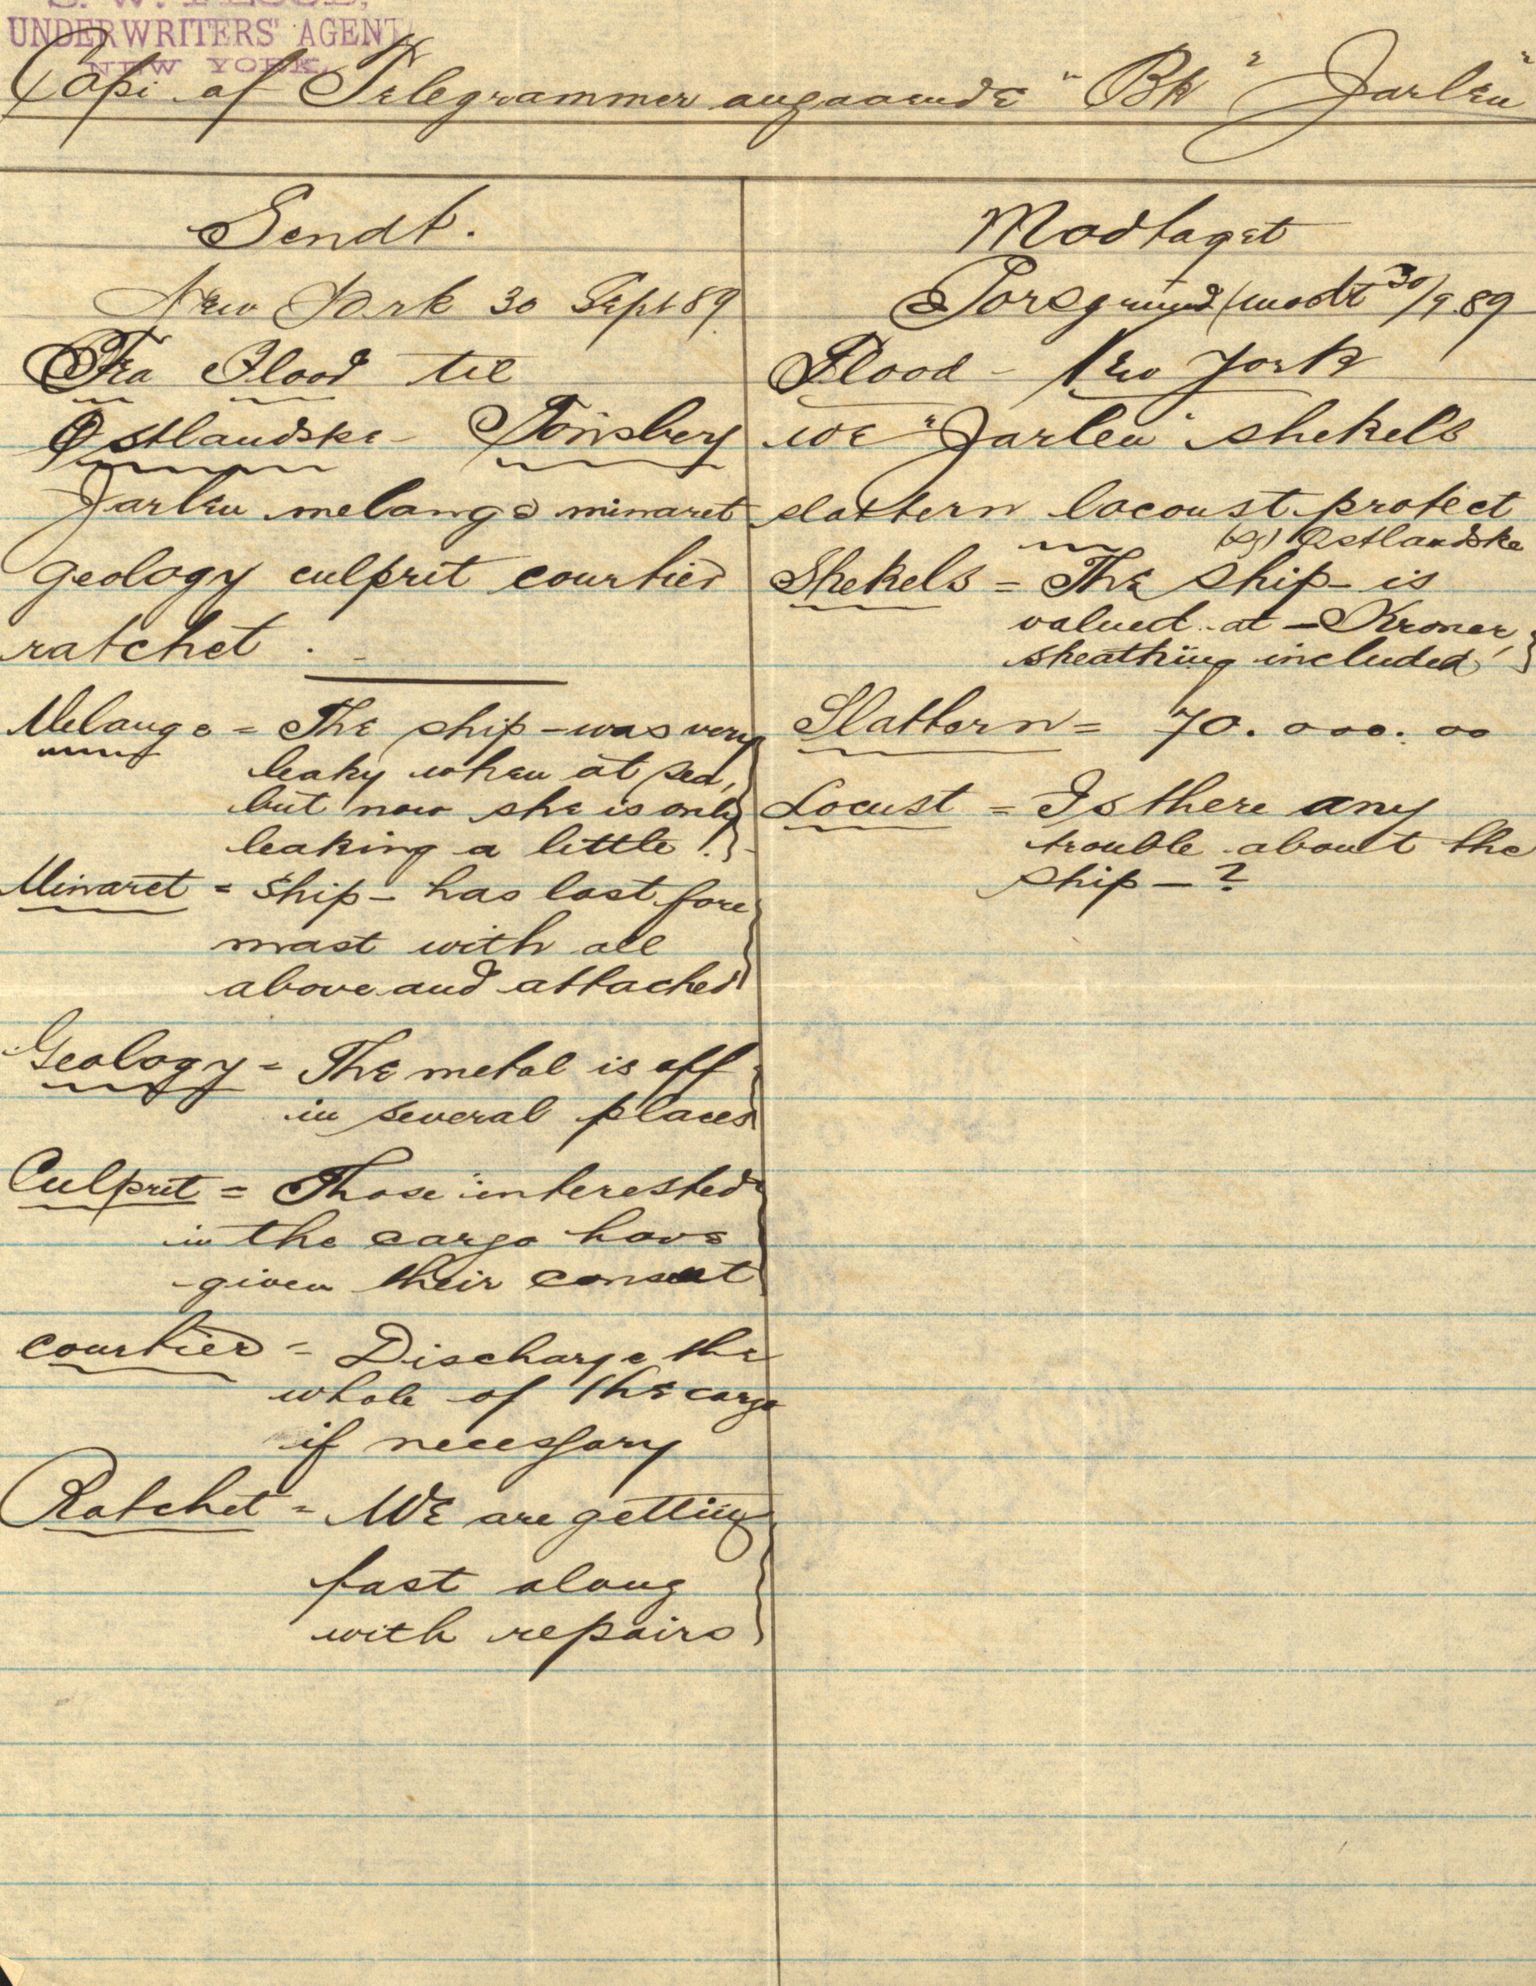 UNDERWRITERS' AGENT
NEW YORK.
Copi af Telegrammer angaaende "Bk" "Jarlen"
Sendt.
New York 30 Sept 89
Fra Flood til
Østlandske - Tönsberg
Jarlen melange minaret
geology culprit courtier
ratchet .
Melange = The ship - was very
leaky when at sea,
but now she is only
leaking a little.
Minaret = Ship - has lost fore
mast with all
above and attached
Geology = The metal is off
in several places
Culprit = Those interested
in the cargo have
given their consent
courtier = Discharge the
whole of the cargo
if necessary
Ratchet = We are getting
fast along
with repairs
Modtaget
Porsgrund (modt 30/9 89
Flood - New York
we "Jarlen" shekels
slattern locoust protect
(sg) Østlandske
Shekels = The ship - is
valued at - Kroner,
sheathing included
Slattern = 70.000.00
Locust = Is there any
trouble about the
ship - ?